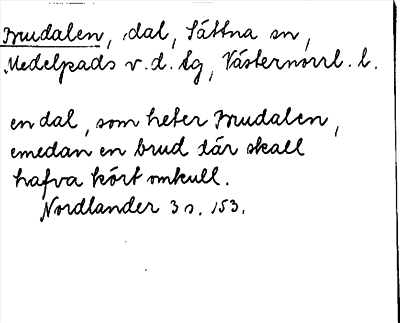 Brudalen, dal, Sättna sn,
Medelpads v. d. tg, Västernorrl. l.
en dal, som heter Brudalen,
emedan en brud där skall
hafva kört omkull.
Nordlander 3 s. 153.